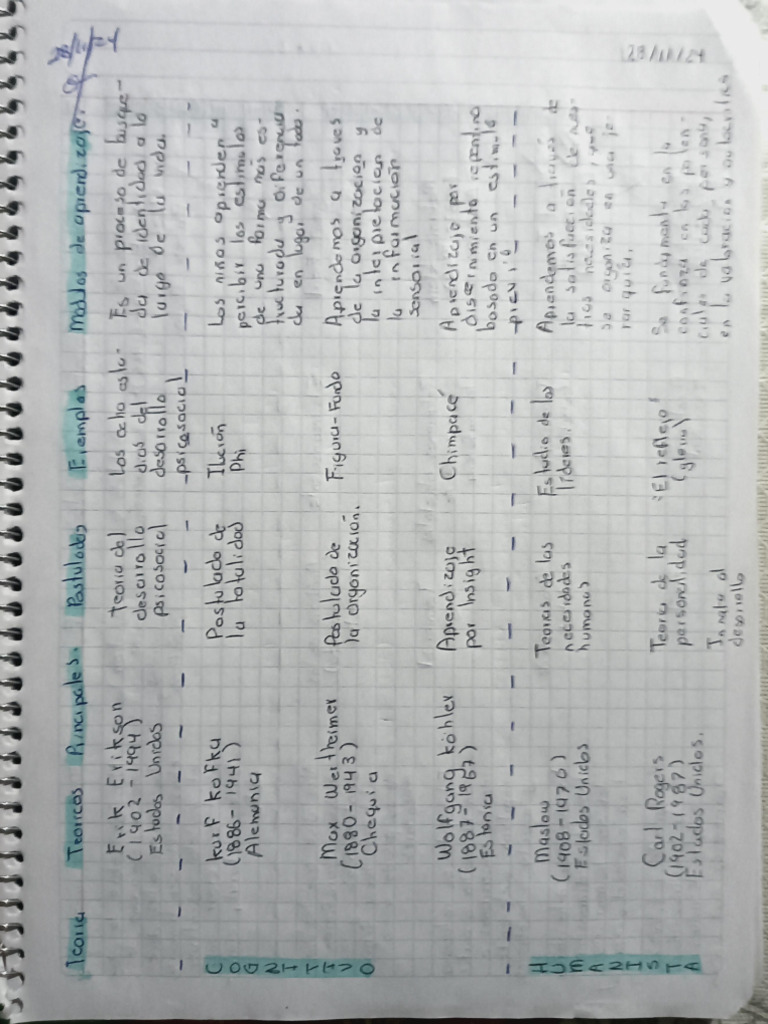 28/11/24
Teoria Teoricos Principales. Postulados Ejemplos Modos de aprendizaje.
Erik Erikson
(1902-1994)
Estados Unidos
Teoria del
desarrollo
psicosocial
Los ocho esta-
dios del
desarrollo
psicosocial
Es un proceso de busque-
da de identidad a lo
largo de la vida.
COGNITIVO
Kurf Kofka
(1886-1941)
Alemania
Postulado de
la totalidad
Ilución
Phi
Los niños aprenden a
percibir los estimulos
de una forma más es-
tructurada y diferencia
da en lugar de un todo.
Max Wertheimer
(1880-1943)
Chequia
Postulado de
la organización.
Figura-Fondo
Aprendemos a traves
de la organización y
la interpretación de
la información
sensorial
Wolfgang köhler
(1887-1967)
Estonia
Aprendizaje
por Insight
Chimpacé
Aprendizaje por
discernimiento repentino
basado en un estimulo
previo
HUMANISTA
Maslow
(1908-1976)
Estados Unidos
Teorias de las
necesidades
humanas
Estudio de los
lideres.
Aprendemos a través de
la satisfacción de nes-
tras necesidades, que
se organiza en una je-
rarquia.
Carl Rogers
(1902-1987)
Estados Unidos.
Teoria de la
personalidad
Innata al
desarrollo
"El reflejo"
Se fundamenta en la
confianza en los poten-
ciales de cada persona,
en la valoración y